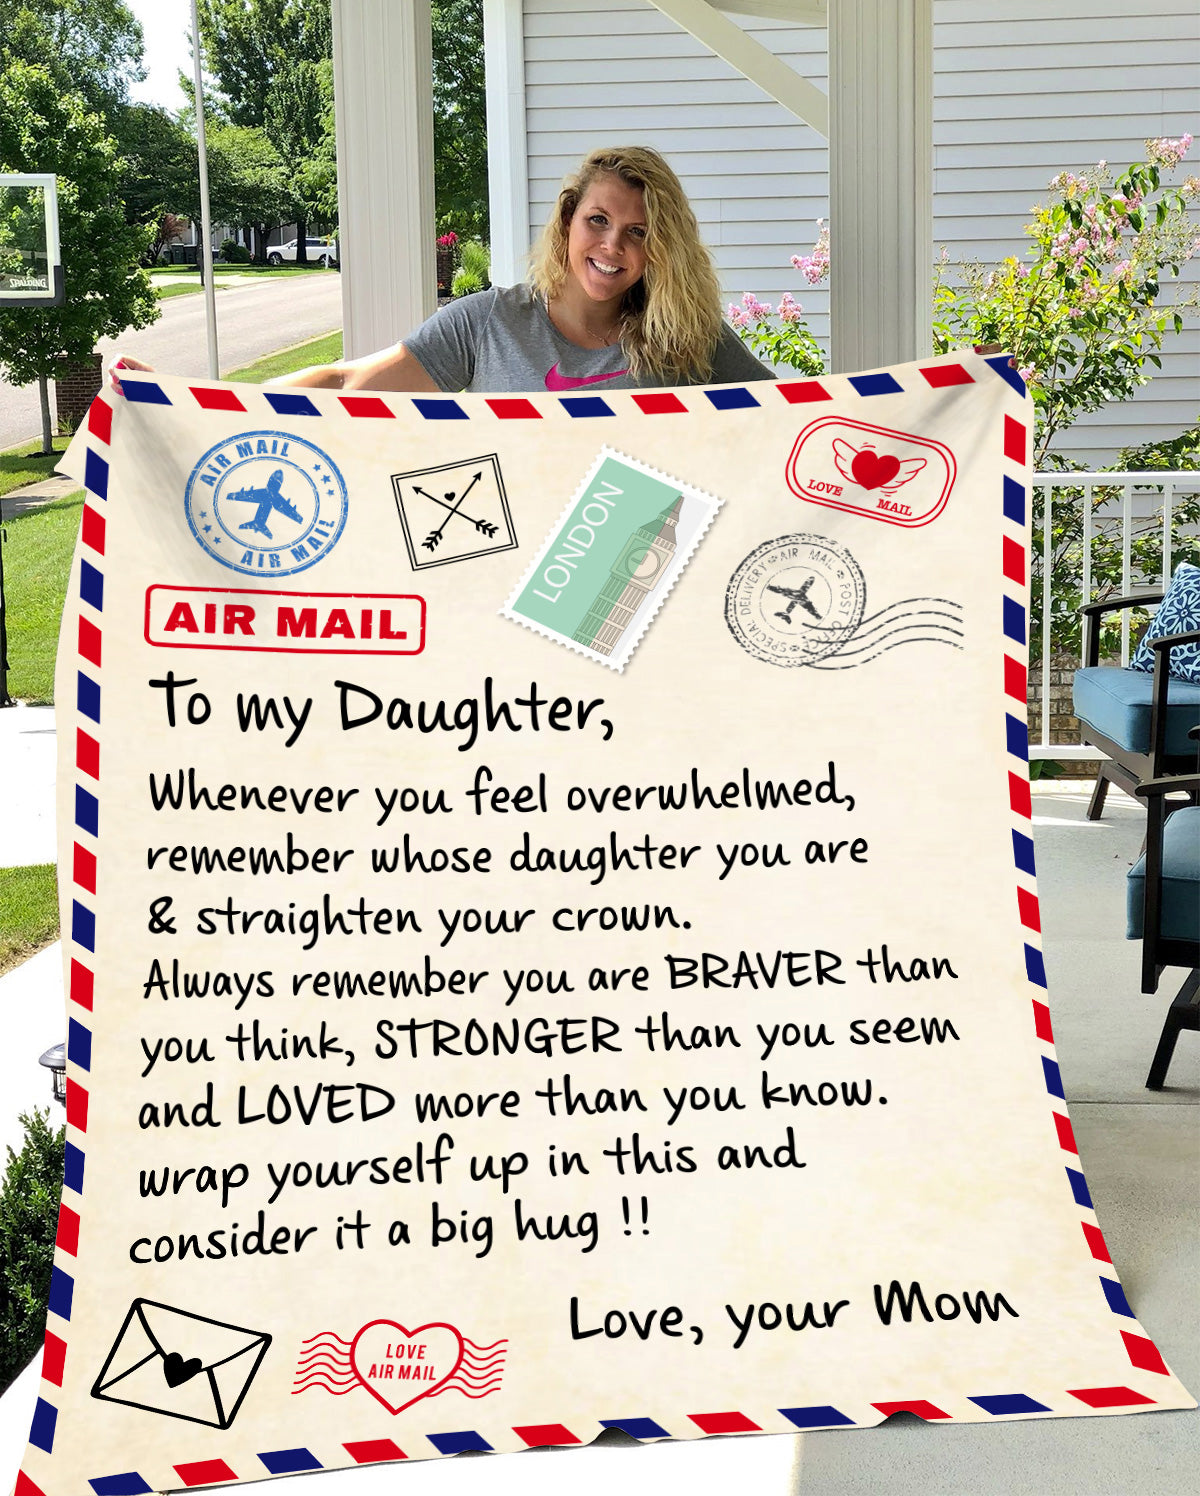 SPALDING
AIR MAIL
AIR MAIL
LONDON
LOVE
MAIL
SPECIAL DELIVERY AIR MAIL POST OFFICE
AIR MAIL
To my Daughter,
Whenever you feel overwhelmed,
remember whose daughter you are
& straighten your crown.
Always remember you are BRAVER than
you think, STRONGER than you seem
and LOVED more than you know.
wrap yourself up in this and
consider it a big hug !!
Love, your Mom
LOVE
AIR MAIL